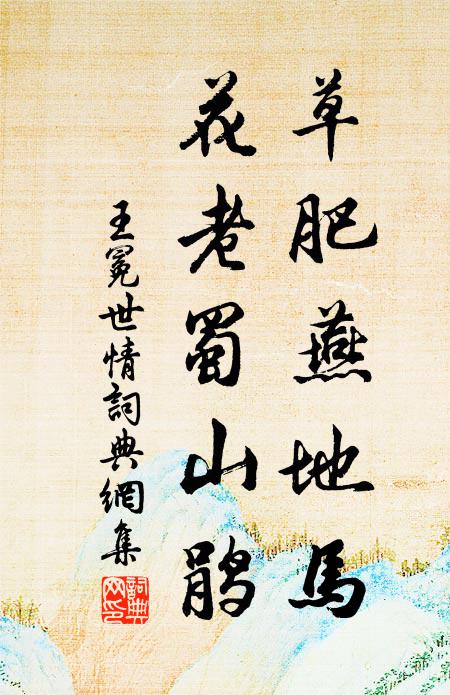 草肥燕地馬
花老蜀山鵑
王冕世情詞典網集
詞典
网印